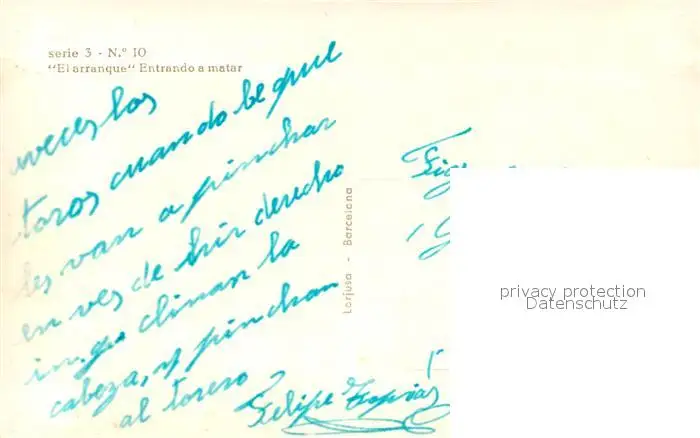 serie 3 - N.º 10
"El arranque" Entrando a matar
aveces los
toros cuando be que
les van a pinchar
en ves de hir derecho
clinan la
cabeza, y pinchan
al torero
Felipe
Larjusa - Barcelona
privacy protection
Datenschutz